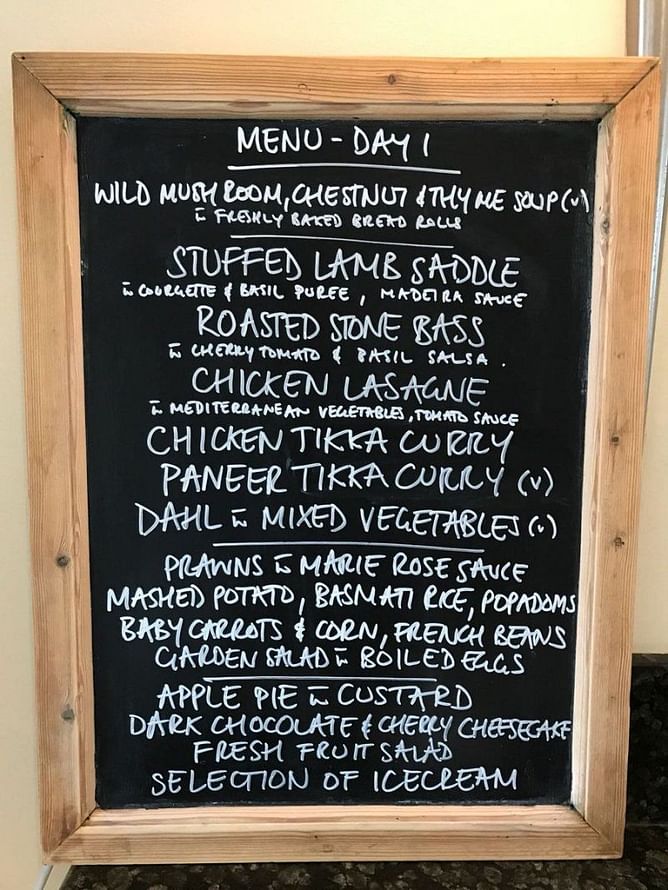 MENU - DAY 1
WILD MUSHROOM, CHESTNUT & THYME SOUP (v)
w FRESHLY BAKED BREAD ROLLS
STUFFED LAMB SADDLE
w COURGETTE & BASIL PUREE, MADEIRA SAUCE
ROASTED STONE BASS
w CHERRY TOMATO & BASIL SALSA.
CHICKEN LASAGNE
w MEDITERRANEAN VEGETABLES, TOMATO SAUCE
CHICKEN TIKKA CURRY
PANEER TIKKA CURRY (v)
DAHL w MIXED VEGETABLES (v)
PRAWNS w MARIE ROSE SAUCE
MASHED POTATO, BASMATI RICE, POPADOMS
BABY CARROTS & CORN, FRENCH BEANS
GARDEN SALAD w BOILED EGGS
APPLE PIE w CUSTARD
DARK CHOCOLATE & CHERRY CHEESECAKE
FRESH FRUIT SALAD
SELECTION OF ICECREAM